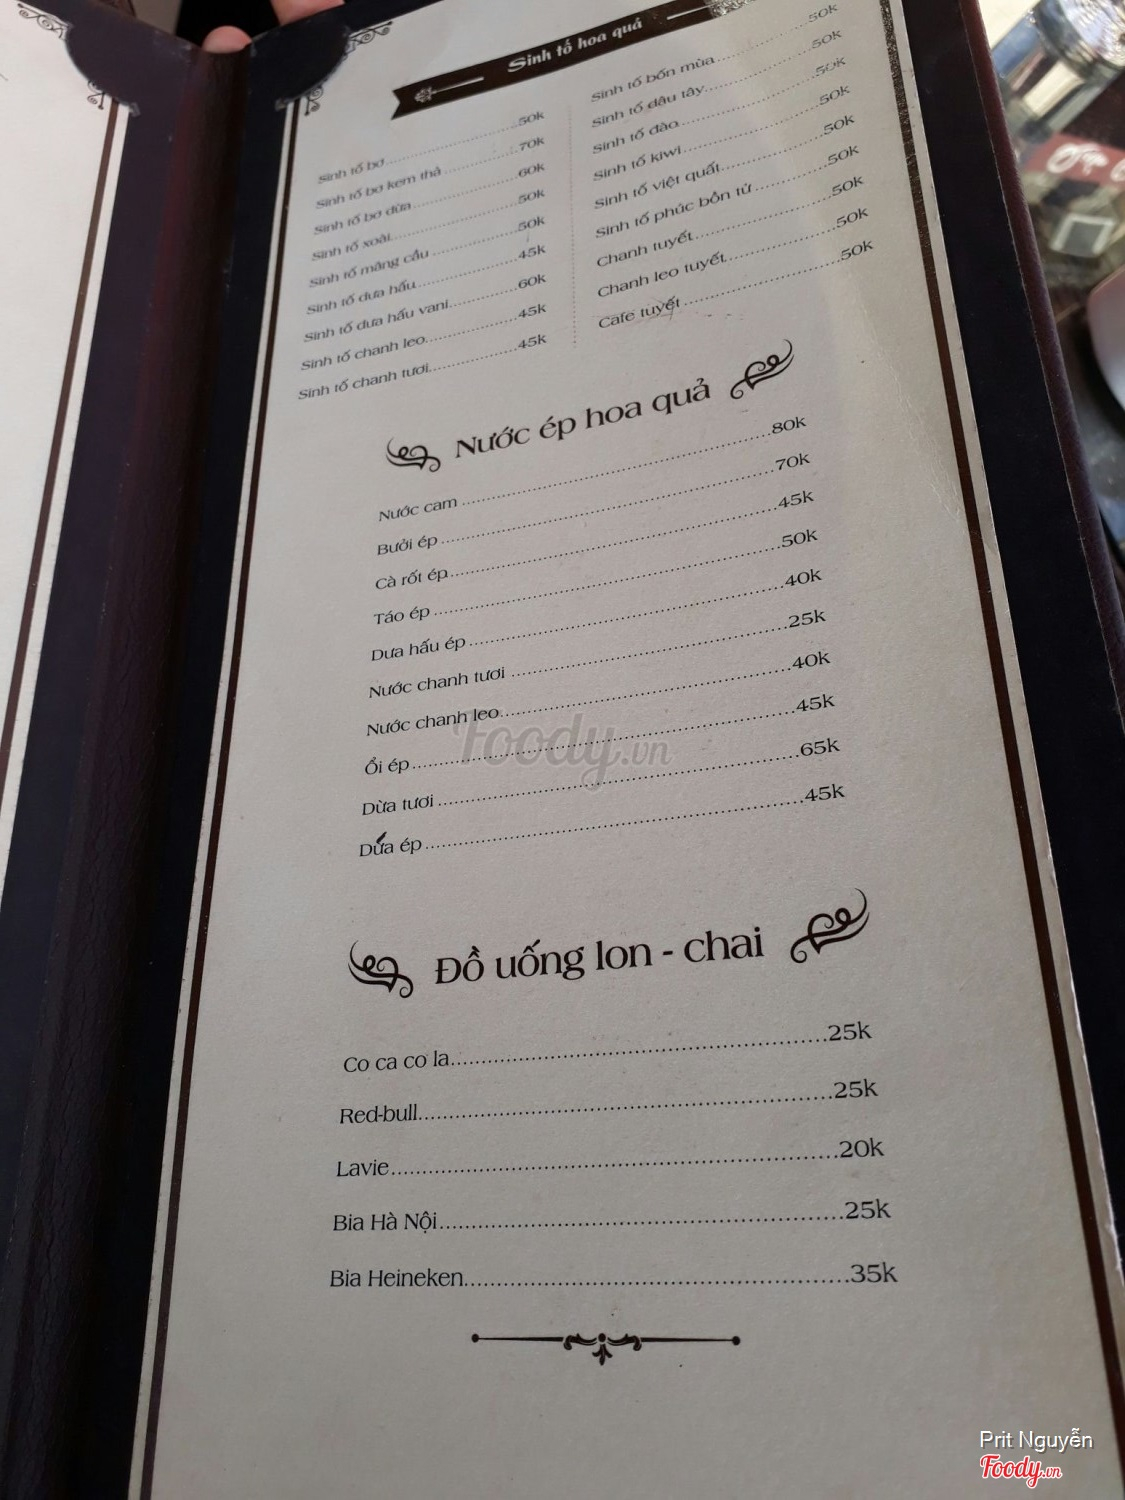 Sinh tố hoa quả
Sinh tố bơ....50k
Sinh tố bơ kem thả....70k
Sinh tố bơ dừa....60k
Sinh tố xoài....50k
Sinh tố mãng cầu....50k
Sinh tố dưa hấu....45k
Sinh tố dưa hấu vani....60k
Sinh tố chanh leo....45k
Sinh tố chanh tươi....45k
Sinh tố bốn mùa....50k
Sinh tố dâu tây....50k
Sinh tố đào....50k
Sinh tố kiwi....50k
Sinh tố việt quất....50k
Sinh tố phúc bồn tử....50k
Chanh tuyết....50k
Chanh leo tuyết....50k
Cafe tuyết....50k
Nước ép hoa quả
Nước cam....80k
Bưởi ép....70k
Cà rốt ép....45k
Táo ép....50k
Dưa hấu ép....40k
Nước chanh tươi....25k
Nước chanh leo....40k
Ổi ép....45k
Dừa tươi....65k
Dứa ép....45k
Đồ uống lon - chai
Co ca co la....25k
Red-bull....25k
Lavie....20k
Bia Hà Nội....25k
Bia Heineken....35k
Foody.vn
Prit Nguyễn
Foody.vn